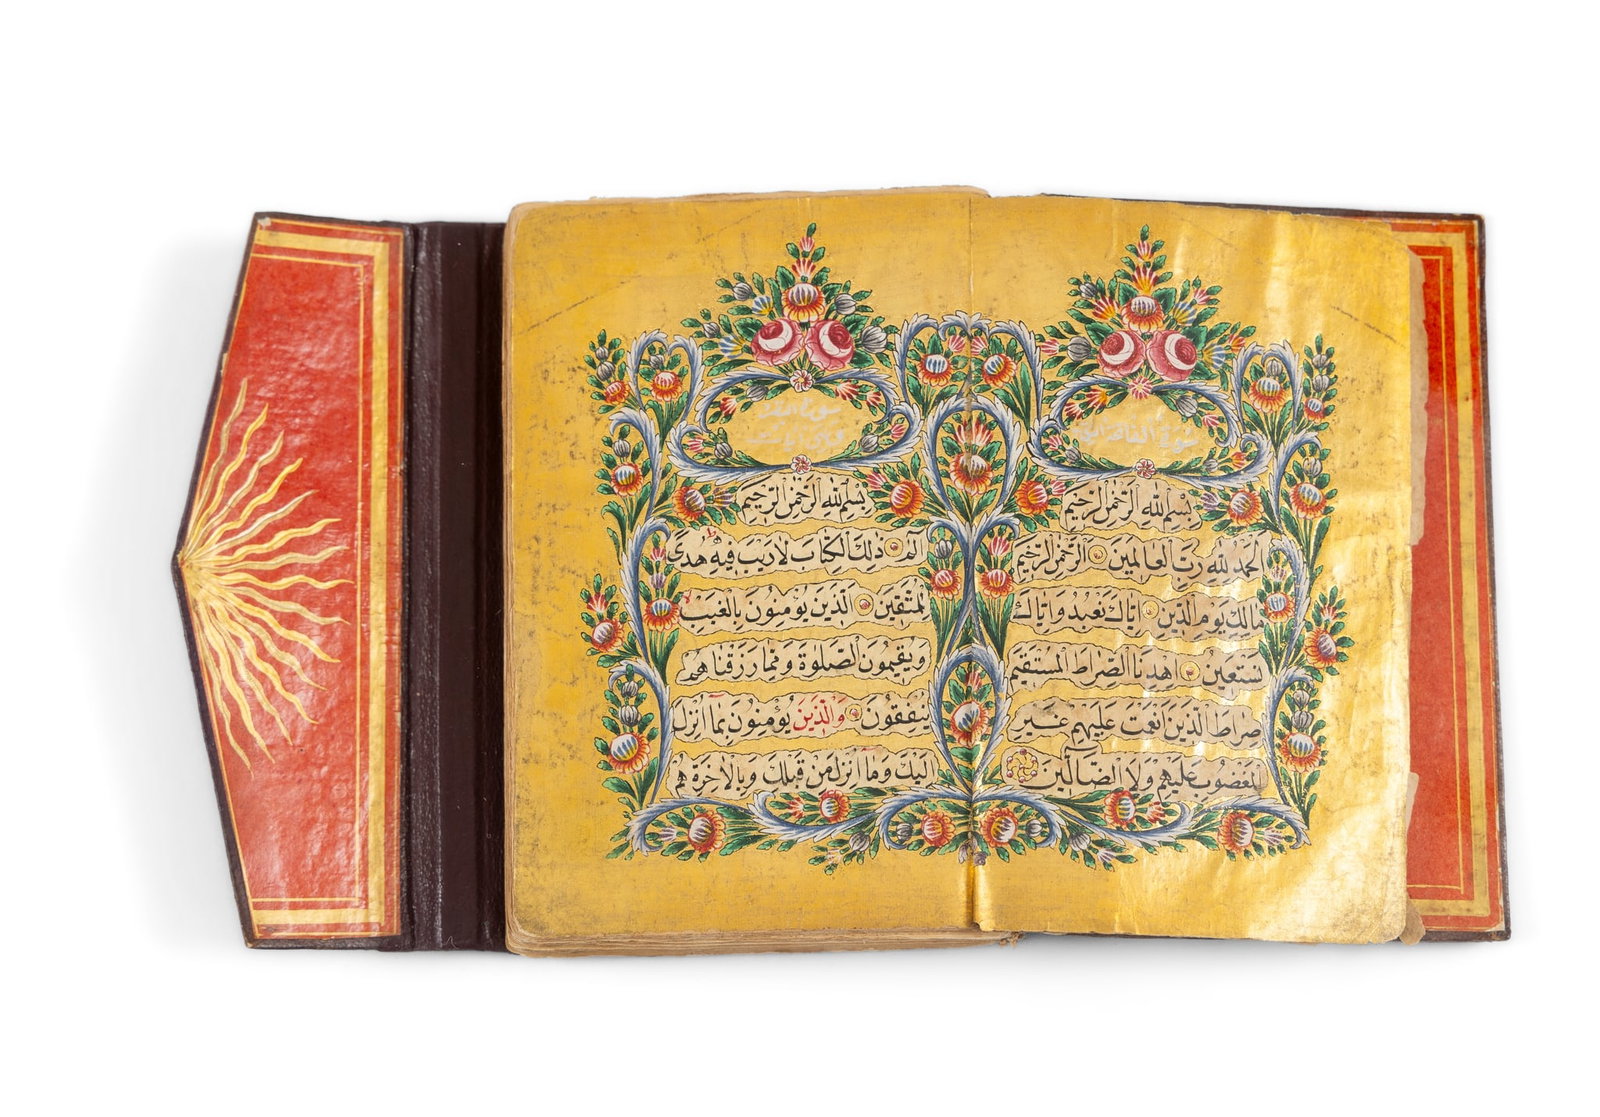 سورة الفاتحة
بسم الله الرحمن الرحيم
الحمد لله رب العالمين الرحمن الرحيم
مالك يوم الدين اياك نعبد واياك
نستعين اهدنا الصراط المستقيم
صراط الذين انعمت عليهم غير
المغضوب عليهم ولا الضالين
سورة البقرة
بسم الله الرحمن الرحيم
الم ذلك الكتاب لا ريب فيه هدى
للمتقين الذين يؤمنون بالغيب
ويقيمون الصلوة ومما رزقناهم
ينفقون والذين يؤمنون بما انزل
اليك وما انزل من قبلك وبالاخرة هم